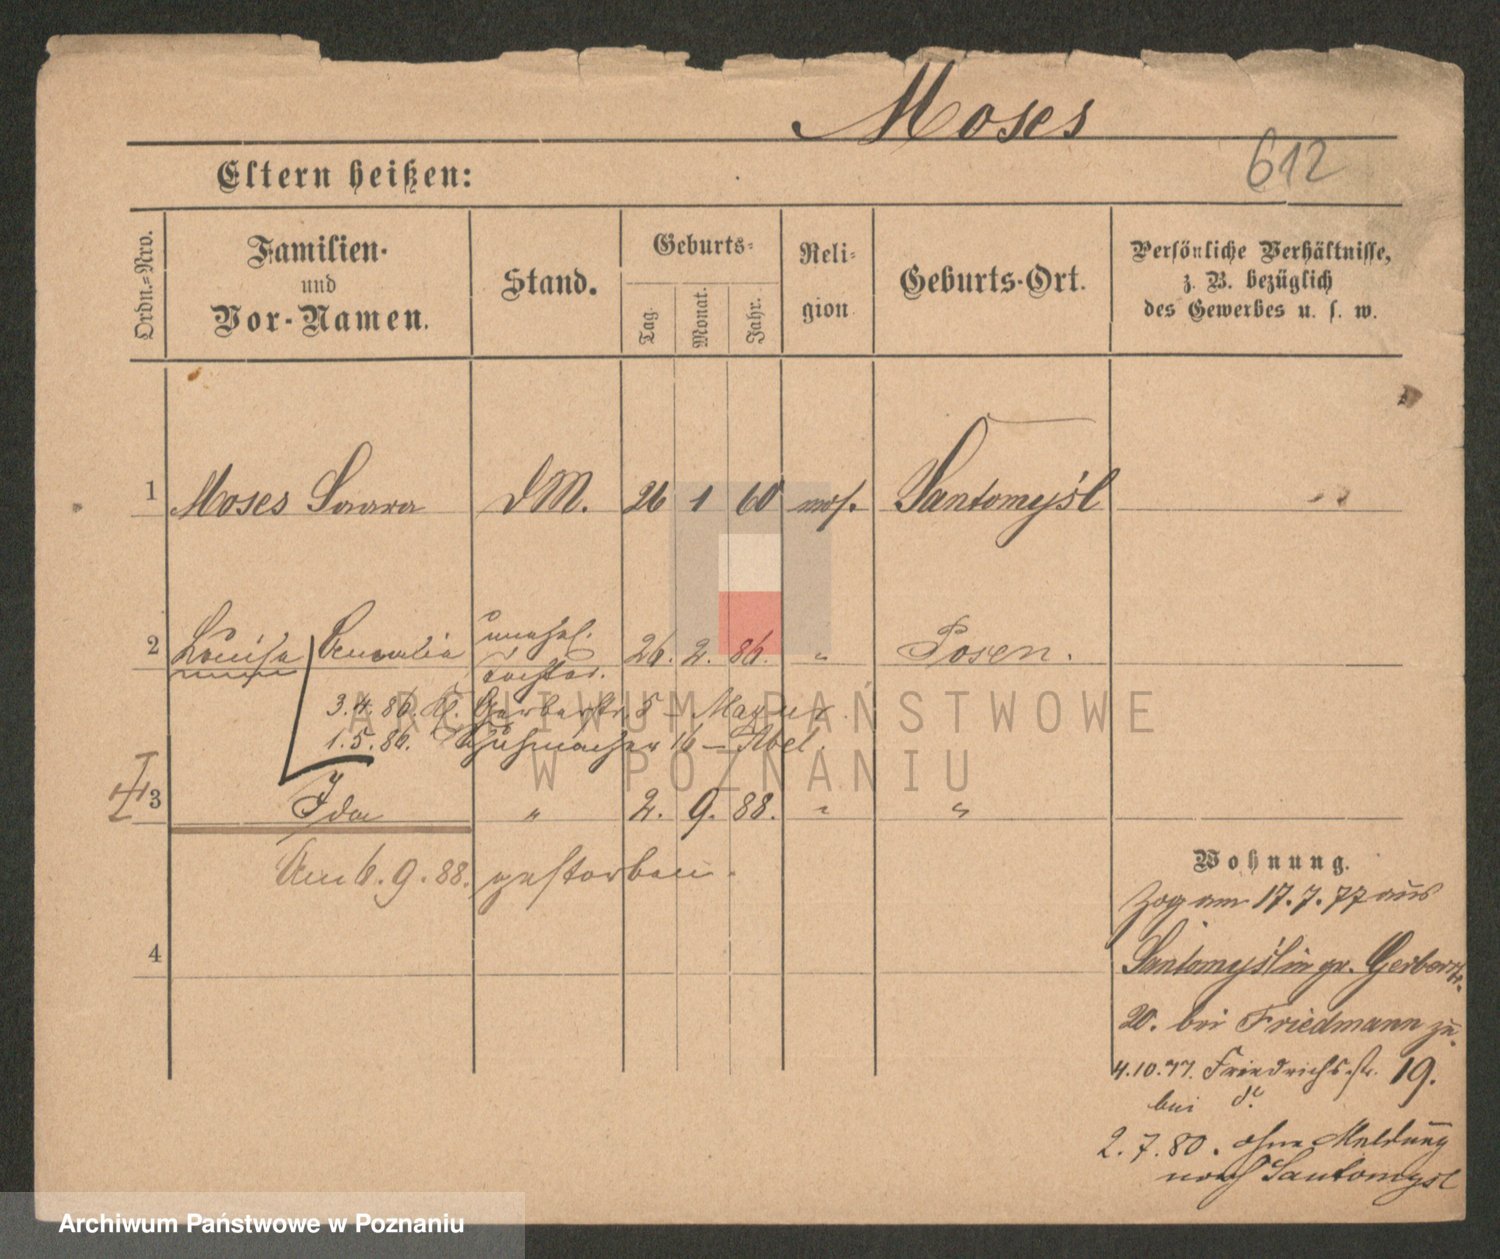 Moses
612
Eltern heißen:
Ordn.-Nro.
Familien-
und
Vor-Namen.
Stand.
Geburts-
Tag.
Monat.
Jahr.
Reli-
gion
Geburts-Ort.
Persönliche Verhältnisse,
z. B. bezüglich
des Gewerbes u. s. w.
1 Moses Saara DM. 26 1 60 mos. Santomysl
2 Louise unehel. 26. 2. 86. " Posen.
Tochter.
3.4.86. Kl. Gerberstr. 8 – Magnus
1.5.86. Schuhmacher 16 – Abel.
3 Ida " 2. 9. 88. " "
Am 6.9.88. gestorben.
4
Wohnung.
Zog am 17.7.77 aus
Santomysl in gr. Gerberstr.
20. bei Friedmann zu.
4.10.77. Friedrichs-str. 19.
bei do.
2.7.80. ohne Meldung
nach Santomysl
ARCHIWUM PAŃSTWOWE
W POZNANIU
Archiwum Państwowe w Poznaniu